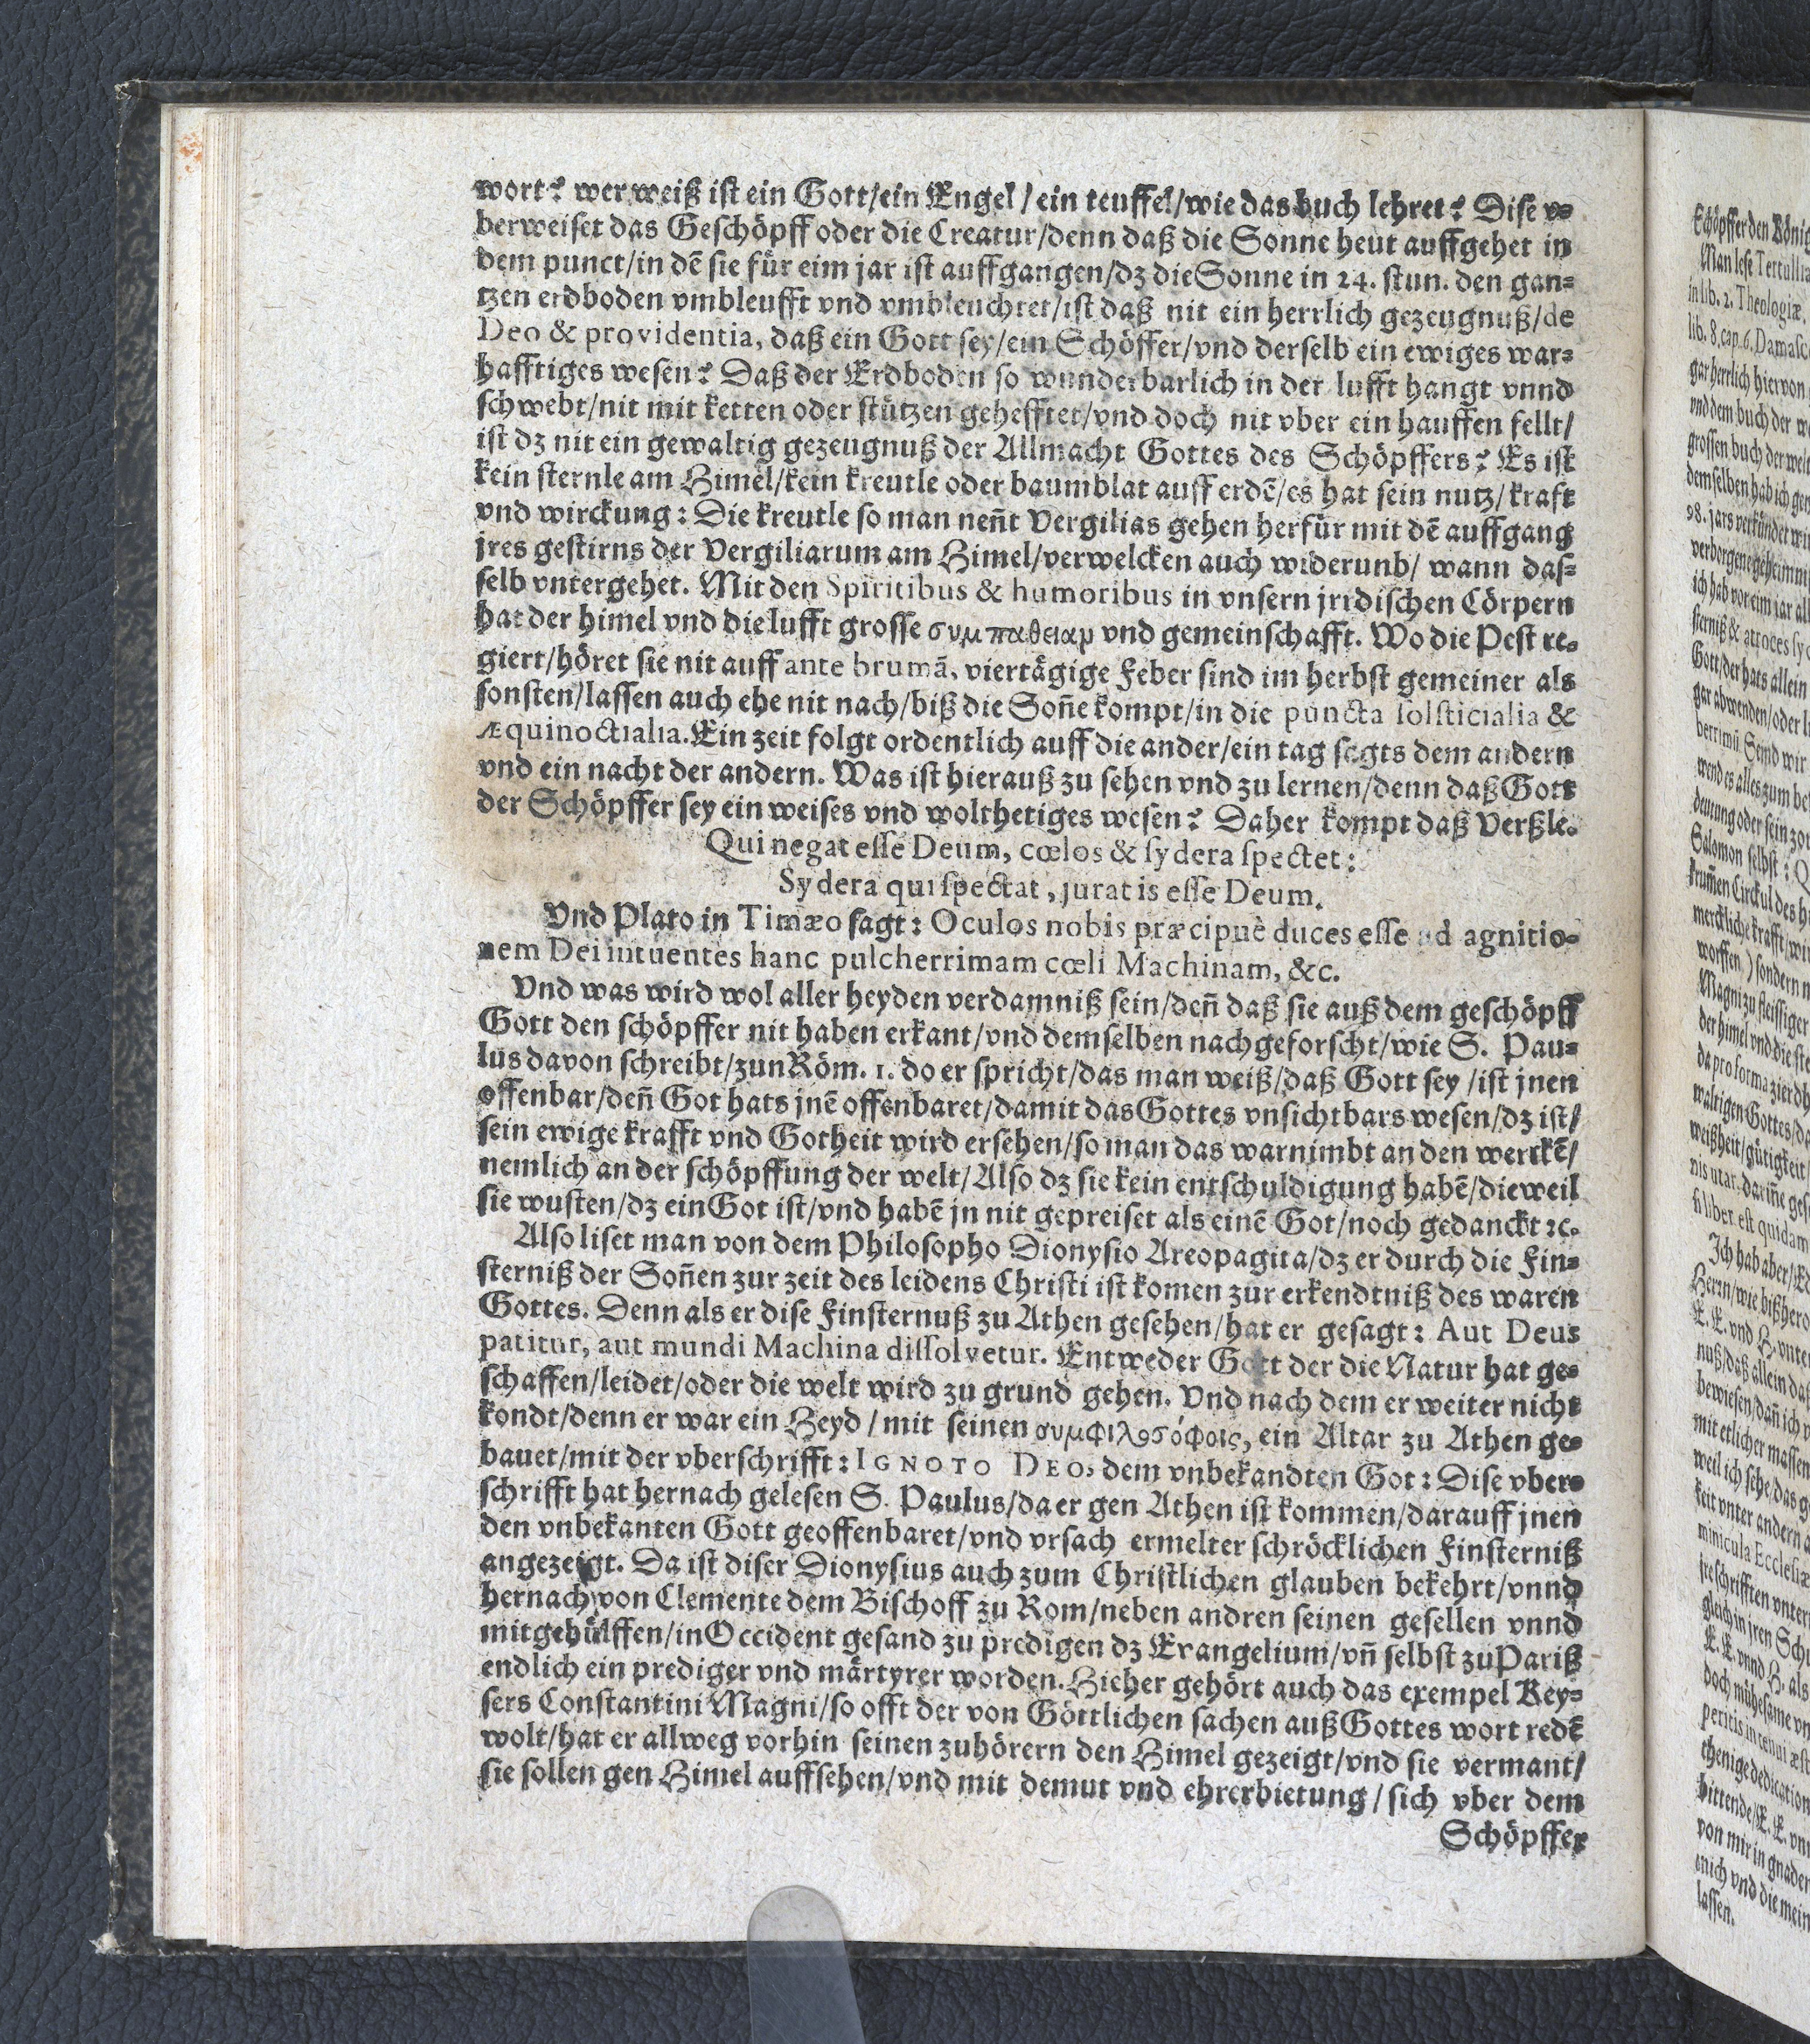 wort? wer weiß ist ein Gott/ein Engel/ein teuffel/wie das buch lehret? Dise v=
berweiset das Geschöpff oder die Creatur/denn daß die Sonne heut auffgehet in
dem punct/in dẽ sie für eim jar ist auffgangen/dz die Sonne in 24. stun. den gan=
tzen erdboden vmbleufft vnd vmbleuchtet/ist daß nit ein herrlich gezeugnuß/de
Deo & providentia, daß ein Gott sey/ein Schöffer/vnd derselb ein ewiges war=
hafftiges wesen? Daß der Erdboden so wunderbarlich in der lufft hangt vnnd
schwebt/nit mit ketten oder stützen gehefftet/vnd doch nit vber ein hauffen fellt/
ist dz nit ein gewaltig gezeugnuß der Allmacht Gottes des Schöpffers? Es ist
kein sternle am Himel/kein kreutle oder baumblat auff erdẽ/es hat sein nutz/kraft
vnd wirckung: Die kreutle so man neñt Vergilias gehen herfür mit dẽ auffgang
jres gestirns der Vergiliarum am Himel/verwelcken auch widerunb/ wann das=
selb vntergehet. Mit den Spiritibus & humoribus in vnsern jrrdischen Cörpern
hat der himel vnd die lufft grosse συμπαθειαν vnd gemeinschafft. Wo die Pest re=
giert/höret sie nit auff ante brumã, viertägige Feber sind im herbst gemeiner als
sonsten/lassen auch ehe nit nach/biß die Soñe kompt/in die puncta solsticialia &
Æquinoctialia. Ein zeit folgt ordentlich auff die ander/ein tag sagts dem andern
vnd ein nacht der andern. Was ist hierauß zu sehen vnd zu lernen/denn daß Gott
der Schöpffer sey ein weises vnd wolthetiges wesen? Daher kompt daß Verßle.
Qui negat esse Deum, cœlos & sydera spectet:
Sydera qui spectat, jurat is esse Deum.
Vnd Plato in Timæo sagt: Oculos nobis præcipuè duces esse ad agnitio=
nem Dei intuentes hanc pulcherrimam cœli Machinam, &c.
Vnd was wird wol aller heyden verdamniß sein/deñ daß sie auß dem geschöpff
Gott den schöpffer nit haben erkant/vnd demselben nachgeforscht/wie S. Pau=
lus davon schreibt/zun Röm. 1. do er spricht/das man weiß/daß Gott sey/ist jnen
offenbar/deñ Got hats jnẽ offenbaret/damit das Gottes vnsichtbars wesen/dz ist/
sein ewige krafft vnd Gotheit wird ersehen/so man das warnimbt an den werckẽ/
nemlich an der schöpffung der welt/Also dz sie kein entschuldigung habẽ/dieweil
sie wusten/dz ein Got ist/vnd habẽ jn nit gepreiset als einẽ Got/noch gedanckt ꝛc.
Also liset man von dem Philosopho Dionysio Areopagita/dz er durch die Fin=
sterniß der Soñen zur zeit des leidens Christi ist komen zur erkendtniß des waren
Gottes. Denn als er dise Finsternuß zu Athen gesehen/hat er gesagt: Aut Deus
patitur, aut mundi Machina dissolvetur. Entweder Gott der die Natur hat ge=
schaffen/leidet/oder die welt wird zu grund gehen. Vnd nach dem er weiter nicht
kondt/denn er war ein Heyd/mit seinen συμφιλοσόφοις, ein Altar zu Athen ge=
bauet/mit der vberschrifft: IGNOTO DEO, dem vnbekandten Got: Dise vber=
schrifft hat hernach gelesen S. Paulus/da er gen Athen ist kommen/darauff jnen
den vnbekanten Gott geoffenbaret/vnd vrsach ermelter schröcklichen Finsterniß
angezeigt. Da ist diser Dionysius auch zum Christlichen glauben bekehrt/vnnd
hernach von Clemente dem Bischoff zu Rom/neben andren seinen gesellen vnnd
mitgehülffen/in Occident gesand zu predigen dz Evangelium/vñ selbst zu Pariß
endlich ein prediger vnd märtyrer worden. Hieher gehört auch das exempel Key=
sers Constantini Magni/so offt der von Göttlichen sachen auß Gottes wort redẽ
wolt/hat er allweg vorhin seinen zuhörern den Himel gezeigt/vnd sie vermant/
sie sollen gen Himel auffsehen/vnd mit demut vnd ehrerbietung/sich vber dem
Schöpffer
Schöpffer den König
Man lese Tertullia
in lib. 2. Theologiæ,
lib. 8. cap. 6. Damasc
gar herrlich hiervon
vnd dem buch der
grossen buch der welt
demselben hab ich
98. jars verkündet
verborgene geheimni
ich hab vor eim jar
sterniß & atroces
Gott/der hats allein
gar abwenden/oder
Seind wir
wend es alles zum
deutung oder sein
Salomon selbst:
krum̃en Circkul des
merckliche krafft
worffen) sondern
Magni zu fleissiger
der himel vnd die
da pro forma zierd
waltigen Gottes
weißheit/gütigkeit
nis utar, dariñe
si liber est quidam
Ich hab aber
Hern/wie bißhero
E. E. vnd H. vnter
nuß/daß allein
bewiesen/dañ ich
mit etlicher massen
weil ich sehe/das
keit vnter andern
minicula Ecclesiæ
schrifften vnter
gleich in jren
E. E. vnnd H. als
doch mühesame
peritis in tenui
dedication
bittende/E. E.
von mir in gnaden
mich vnd die mein
lassen.